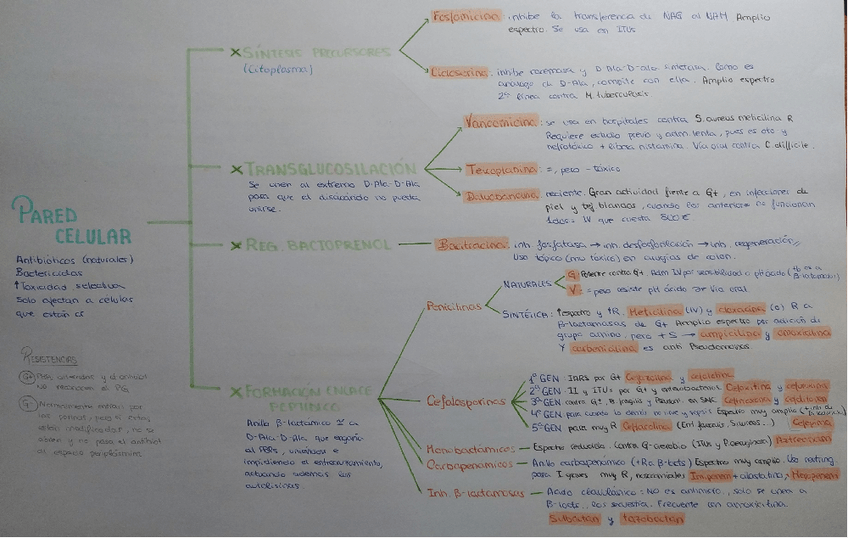 PARED
CELULAR
Antibióticos (naturales)
Bactericidas
↑Toxicidad selectiva
Solo afectan a células
que están
RESISTENCIAS
no reconocen el
Normalmente entran por
las porinas, pero si estas
están modificadas, no se
y no pasa el antibiot
al espacio periplásmico.
X SÍNTESIS PRECURSORES
(Citoplasma)
Fosfomicina: inhibe la transferencia de NAG al NAM Amplio
espectro. Se usa en ITUs
Cicloserina: inhibe racemasa y D-Ala-D-Ala sintetasa. Como es
análogo de D-Ala, compite con ella. Amplio espectro
2ª línea contra M. tuberculosis
X TRANSGLUCOSILACIÓN
Se unen al extremo D-Ala-D-Ala
para que el disacárido no pueda
unirse.
Vancomicina: se usa en hospitales contra S. aureus meticilina R
Requiere estudio previo y adm. lenta, pues es oto y
nefrotóxico + libera histamina. Vía oral contra C. difficile.
Teicoplanina: =, pero - tóxico
reciente. Gran actividad frente a G+, en infecciones de
piel y tej. blandos, cuando los anteriores no funcionan
1 dosis IV que cuesta 800€
X REG. BACTOPRENOL
Bacitracina: inh. fosfatasa → inh. desfosforilación → inh. regeneración
Uso tópico (muy tóxico) en cirugías de colon.
X FORMACIÓN ENLACE
PEPTÍDICO
Anillo β-lactámico ≈ a
D-Ala-D-Ala, que engaña
al PBPs, uniéndose e
impidiendo el entrecruzamiento,
activando además las
autolisinas.
Penicilinas
NATURALES
G: Potente contra G+. Adm IV por sensibilidad a pH ácido
V: = pero resiste pH ácido → Vía oral
SINTÉTICA: ↑espectro y ↑R. Meticilina (IV) y cloxacilina (o) R a
β-lactamasas de G+ Amplio espectro por adición de
grupo amino, pero +S → ampicilina y amoxicilina
Y carbenicilina es anti Pseudomonas.
Cefalosporinas
1ª GEN: por G+ Cefazolina y
2ª GEN: II y ITUs por G+ y enterobacterias. Cefoxitina y cefuroxima
3ª GEN: contra G-, B. fragilis y Pseudom. en SNC.
4ª GEN: para cuando lo demás no sirve y sepsis Espectro muy amplio
5ª GEN: para muy R Ceftarolina
Cefepima
Monobactámicos — Espectro reducido. Contra G- aerobio (ITUs y P. aeruginosa) Aztreonam
Carbapenémicos — Anillo carbapenémico (+R a β-lacts) Espectro muy amplio. Uso restring.
para I graves muy R, nosocomiales Imipenem + cilastatina, Meropenem
Inh. β-lactamasas — Ácido clavulánico: NO es antimicro., solo se unen a
β-lacts., los secuestra. Frecuente con amoxicilina.
Sulbactam y tazobactam